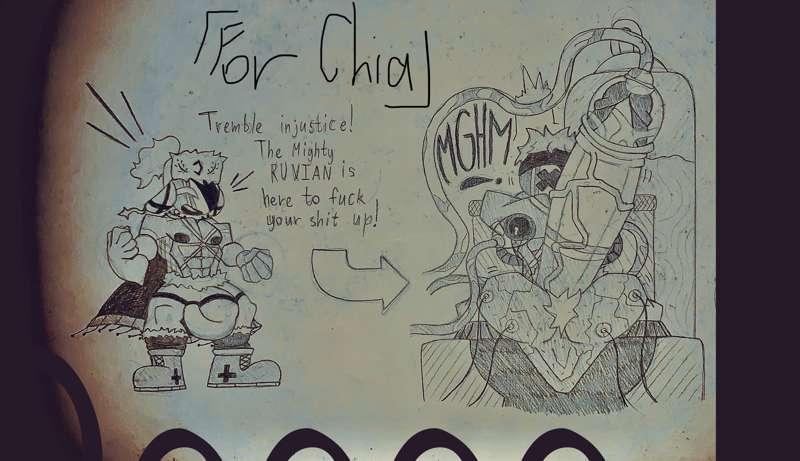 「For Chia」
Tremble injustice!
The Mighty
RUVIAN is
here to fuck
your shit up!
MGHM